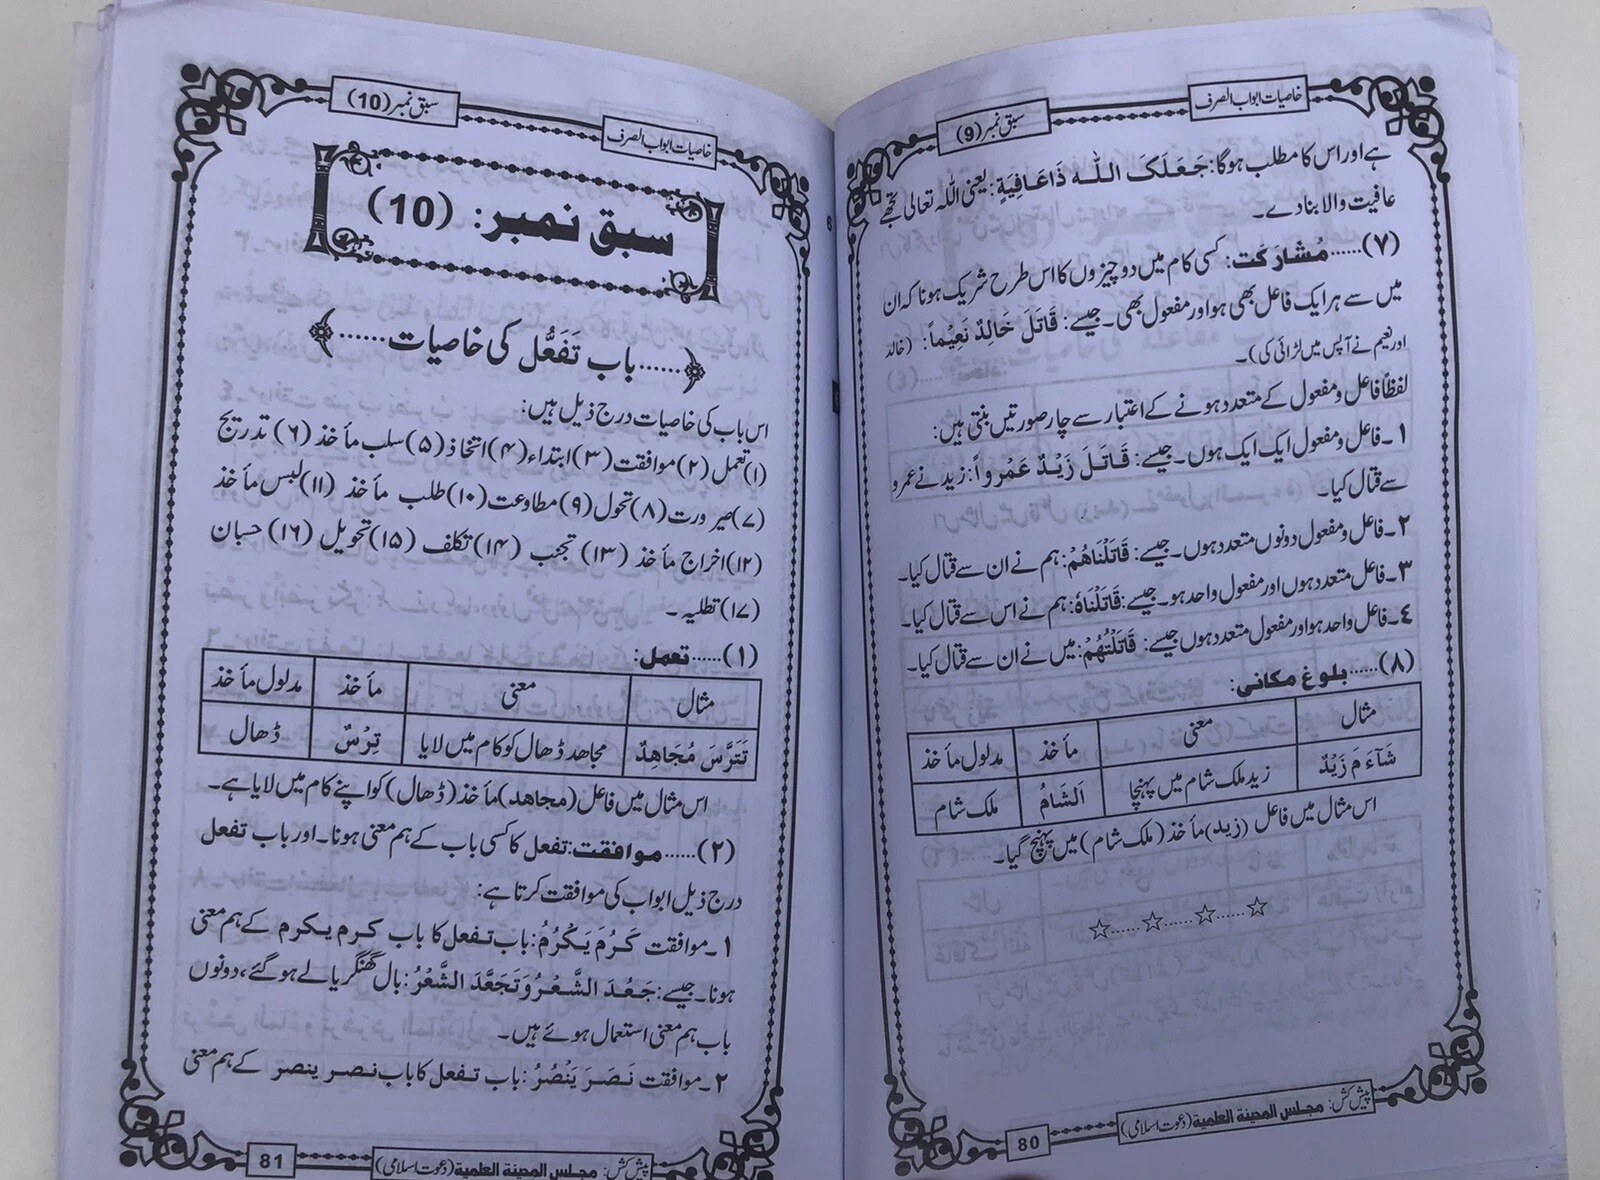 خاصیات ابواب الصرف
سبق نمبر (9)
ہے اور اس کا مطلب ہوگا: جَعَلَکَ اللّٰہ ذَاعَافِیَةٍ: یعنی اللّٰہ تعالی تجھے
عافیت والا بنادے۔
(۷)......مُشارکت: کسی کام میں دو چیزوں کا اس طرح شریک ہونا کہ ان
میں سے ہر ایک فاعل بھی ہو اور مفعول بھی۔ جیسے: قَاتَلَ خَالِدٌ نَعِیْماً: (خالد
اور نعیم نے آپس میں لڑائی کی)۔
لفظاً فاعل و مفعول کے متعدد ہونے کے اعتبار سے چار صورتیں بنتی ہیں:
۱۔ فاعل و مفعول ایک ایک ہوں۔ جیسے: قَاتَلَ زَیْدٌ عَمْرواً: زید نے عمرو
سے قتال کیا۔
۲۔ فاعل و مفعول دونوں متعدد ہوں۔ جیسے: قَاتَلْنَاهُمْ: ہم نے ان سے قتال کیا۔
۳۔ فاعل متعدد ہوں اور مفعول واحد ہو۔ جیسے: قَاتَلْنَاهُ: ہم نے اس سے قتال کیا۔
٤۔ فاعل واحد ہو اور مفعول متعدد ہوں جیسے: قَاتَلْتُهُمْ: میں نے ان سے قتال کیا۔
(۸)......بلوغ مکانی:
مثال معنی مأخذ مدلول مأخذ
شَآءَ مَ زَیْدٌ زید ملک شام میں پہنچا اَلشَامُ ملک شام
اس مثال میں فاعل (زید) مأخذ (ملک شام) میں پہنچ گیا۔
☆......☆......☆......☆
پیش کش: مجلس المدینة العلمیة (دعوت اسلامی)
80
سبق نمبر (10)
خاصیات ابواب الصرف
سبق نمبر: (10)
......باب تَفَعُّل کی خاصیات......
اس باب کی خاصیات درج ذیل ہیں:
(۱) تعمل (۲) موافقت (۳) ابتداء (۴) اتخاذ (۵) سلب مأخذ (۶) تدریج
(۷) صیرورت (۸) تحول (۹) مطاوعت (۱۰) طلب مأخذ (۱۱) لبس مأخذ
(۱۲) اخراج مأخذ (۱۳) تجنب (۱۴) تکلف (۱۵) تحویل (۱۶) حسبان
(۱۷) تطلیہ۔
(۱)......تعمل:
مثال معنی مأخذ مدلول مأخذ
تَتَرَّسَ مُجَاهِدٌ مجاهد ڈھال کو کام میں لایا تِرْسٌ ڈھال
اس مثال میں فاعل (مجاهد) مأخذ (ڈھال) کو اپنے کام میں لایا ہے۔
(۲)......موافقت: تفعل کا کسی باب کے ہم معنی ہونا۔ اور باب تفعل
درج ذیل ابواب کی موافقت کرتا ہے:
۱۔ موافقت کَرُمَ یَکْرُمُ: باب تفعل کا باب کرم یکرم کے ہم معنی
ہونا۔ جیسے: جَعُدَ الشَّعْرُ وَتَجَعَّدَ الشَّعْرُ: بال گھنگریالے ہو گئے، دونوں
باب ہم معنی استعمال ہوئے ہیں۔
۲۔ موافقت نَصَرَ یَنْصُرُ: باب تفعل کا باب نصر ینصر کے ہم معنی
پیش کش: مجلس المدینة العلمیة (دعوت اسلامی)
81